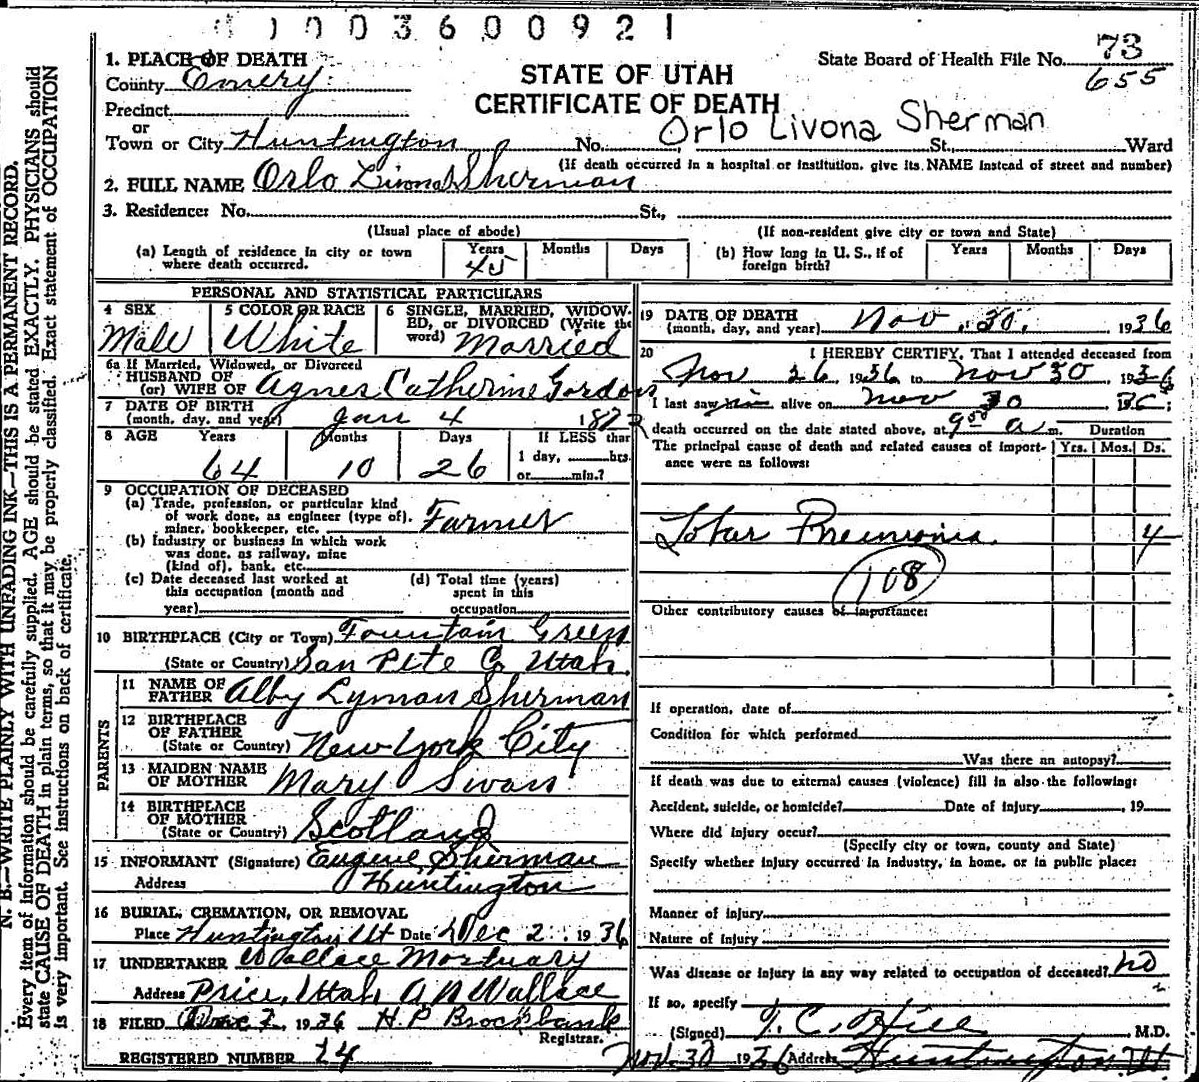 0 0 3 6 0 0 9 2 1
1. PLACE OF DEATH
County Emery
Precinct
or
Town or City Huntington No. St., Ward
STATE OF UTAH
CERTIFICATE OF DEATH
State Board of Health File No. 73
655
Orlo Livona Sherman
(If death occurred in a hospital or institution, give its NAME instead of street and number)
2. FULL NAME Orlo Livona Sherman
3. Residence: No. St.,
(Usual place of abode) (If non-resident give city or town and State)
(a) Length of residence in city or town where death occurred. Years 45 Months Days
(b) How long in U. S., if of foreign birth? Years Months Days
PERSONAL AND STATISTICAL PARTICULARS
4 SEX Male
5 COLOR OR RACE White
6 SINGLE, MARRIED, WIDOWED, or DIVORCED (Write the word) Married
6a If Married, Widowed, or Divorced
HUSBAND OF
(or) WIFE OF Agnes Catherine Gordon
7 DATE OF BIRTH
(month, day, and year) Jan 4 1872
8 AGE Years Months Days If LESS than
64 10 26 1 day, hrs.
or min.?
9 OCCUPATION OF DECEASED
(a) Trade, profession, or particular kind
of work done, as engineer (type of),
miner, bookkeeper, etc. Farmer
(b) Industry or business in which work
was done, as railway, mine
(kind of), bank, etc.
(c) Date deceased last worked at
this occupation (month and
year)
(d) Total time (years)
spent in this
occupation
10 BIRTHPLACE (City or Town) Fountain Green
(State or Country) San Pete Co Utah
PARENTS
11 NAME OF
FATHER Alby Lyman Sherman
12 BIRTHPLACE
OF FATHER
(State or Country) New York City
13 MAIDEN NAME
OF MOTHER Mary Swan
14 BIRTHPLACE
OF MOTHER
(State or Country) Scotland
15 INFORMANT (Signature) Eugene Sherman
Address Huntington
16 BURIAL, CREMATION, OR REMOVAL
Place Huntington Ut Date Dec 2 1936
17 UNDERTAKER Wallace Mortuary
Address Price, Utah A N Wallace
18 FILED Dec 2, 1936 H. P. Brockbank
Registrar.
REGISTERED NUMBER 24
19 DATE OF DEATH
(month, day, and year) Nov. 30, 1936
20 I HEREBY CERTIFY, That I attended deceased from
Nov 26 1936 to Nov 30 1936
I last saw him alive on Nov 30 36;
death occurred on the date stated above, at 9 50 a m. Duration
The principal cause of death and related causes of importance were as follows: Yrs. Mos. Ds.
Lobar Pneumonia. 4
108
Other contributory causes of importance:
If operation, date of
Condition for which performed
Was there an autopsy?
If death was due to external causes (violence) fill in also the following:
Accident, suicide, or homicide? Date of injury , 19
Where did injury occur?
(Specify city or town, county and State)
Specify whether injury occurred in industry, in home, or in public place:
Manner of injury
Nature of injury
Was disease or injury in any way related to occupation of deceased? no
If so, specify
(Signed) T. C. Hill M.D.
Nov. 30 1936 Address Huntington Ut.
N. B.—WRITE PLAINLY WITH UNFADING INK—THIS IS A PERMANENT RECORD.
Every item of information should be carefully supplied. AGE should be stated EXACTLY. PHYSICIANS should
state CAUSE OF DEATH in plain terms, so that it may be properly classified. Exact statement of OCCUPATION
is very important. See instructions on back of certificate.